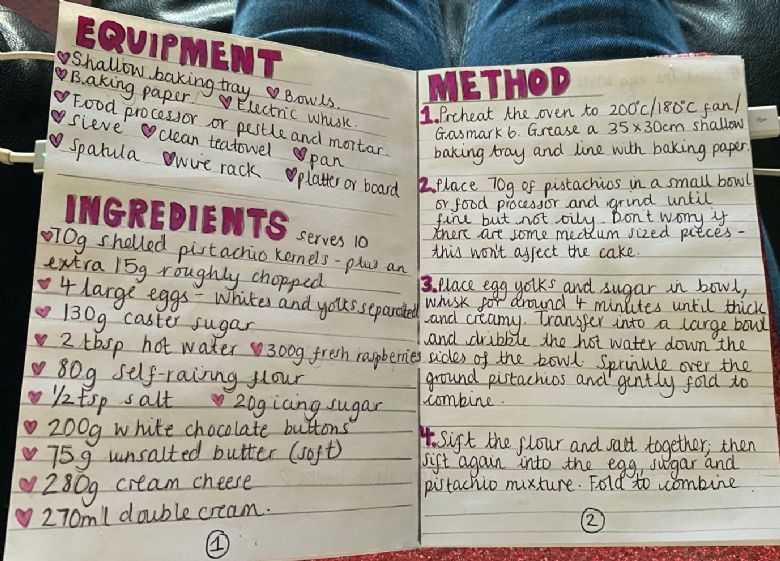 EQUIPMENT
Shallow baking tray Bowls.
Baking paper. Electric whisk.
Food processor or pestle and mortar.
Sieve clean teatowel pan
Spatula wire rack platter or board
INGREDIENTS serves 10
70g shelled pistachio kernels - plus an
extra 15g roughly chopped
4 large eggs - whites and yolks separated
130g caster sugar
2 tbsp hot water 300g fresh raspberries
80g self-raising flour
1/2 tsp salt 20g icing sugar
200g white chocolate buttons
75g unsalted butter (soft)
280g cream cheese
270ml double cream.
1
METHOD
1. Preheat the oven to 200°C/180°C fan/
Gasmark 6. Grease a 35x30cm shallow
baking tray and line with baking paper.
2. Place 70g of pistachios in a small bowl
or food processor and grind until
fine but not oily. Don't worry if
there are some medium sized pieces -
this won't affect the cake.
3. Place egg yolks and sugar in bowl,
whisk for around 4 minutes until thick
and creamy. Transfer into a large bowl
and dribble the hot water down the
sides of the bowl Sprinkle over the
ground pistachios and gently fold to
combine.
4. Sift the flour and salt together, then
sift again into the egg, sugar and
pistachio mixture. Fold to combine
2